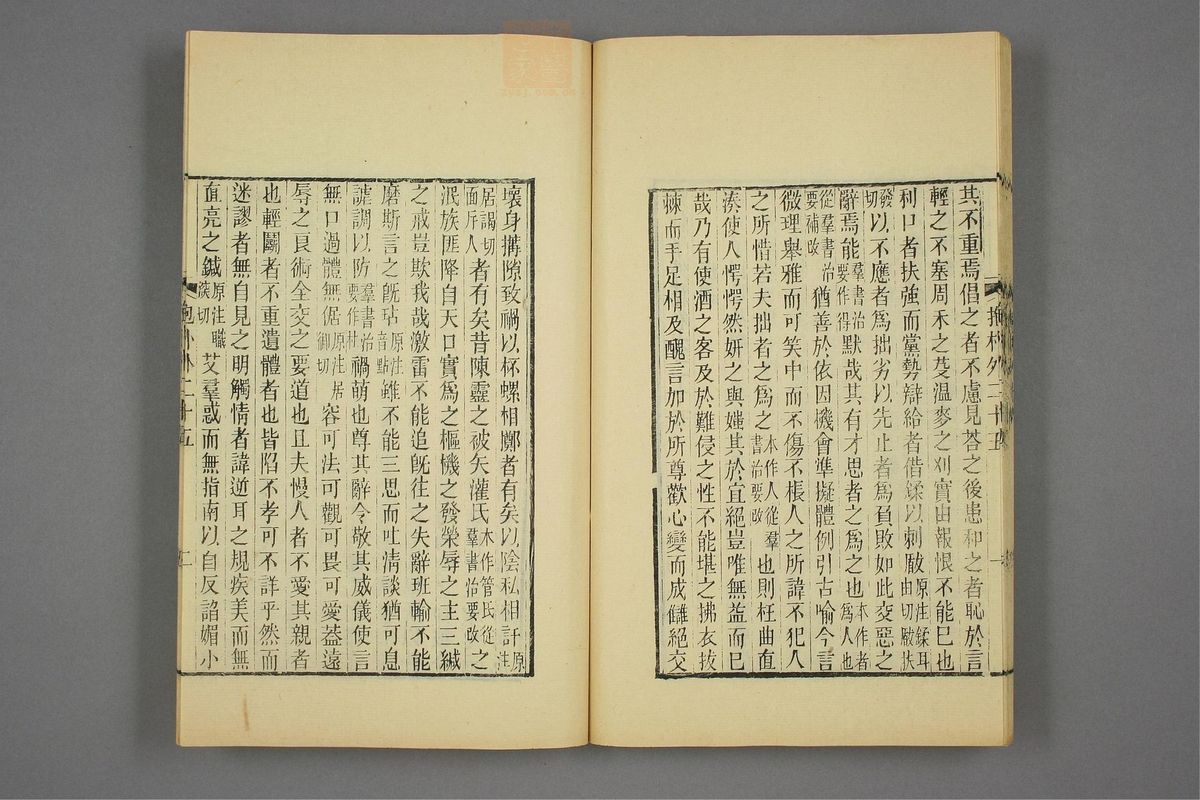 其不重焉倡之者不慮見荅之後患和之者恥於言
輕之不塞周禾之芟溫麥之刈實由報恨不能已也
利口者扶強而黨勢辯給者借鍒以刺瞂原注鍒耳由切瞂扶
發切以不應者爲拙劣以先止者爲負敗如此交惡之
辭焉能羣書治要作得默哉其有才思者之爲之也本作者爲人也
從羣書治要補改猶善於依因機會準擬體例引古喻今言
微理舉雅而可笑中而不傷不棖人之所諱不犯人
之所惜若夫拙者之爲之本作人從羣書治要改也則枉曲直
湊使人愕愕然妍之與媸其於宜絕豈唯無益而已
哉乃有使酒之客及於難侵之性不能堪之拂衣拔
棘而手足相及醜言加於所尊歡心變而成讎絕交
抱朴外二十五
一
壞身搆隙致禍以杯螺相擲者有矣以陰私相訐原注
居謁切面斥人者有矣昔陳靈之被矢灌氏本作管氏從羣書治要改之
泯族匪降自天口實爲之樞機之發榮辱之主三緘
之戒豈欺我哉激雷不能追旣往之失辭班輸不能
磨斯言之旣玷原注音點雖不能三思而吐淸談猶可息
謔調以防羣書治要作杜禍萌也尊其辭令敬其威儀使言
無口過體無倨原注居御切容可法可觀可畏可愛蓋遠
辱之良術全交之要道也且夫慢人者不愛其親者
也輕鬭者不重遺體者也皆陷不孝可不詳乎然而
迷謬者無自見之明觸情者諱逆耳之規疾美而無
直亮之鍼原注職葴切艾羣惑而無指南以自反諂媚小
抱朴外二十五
二